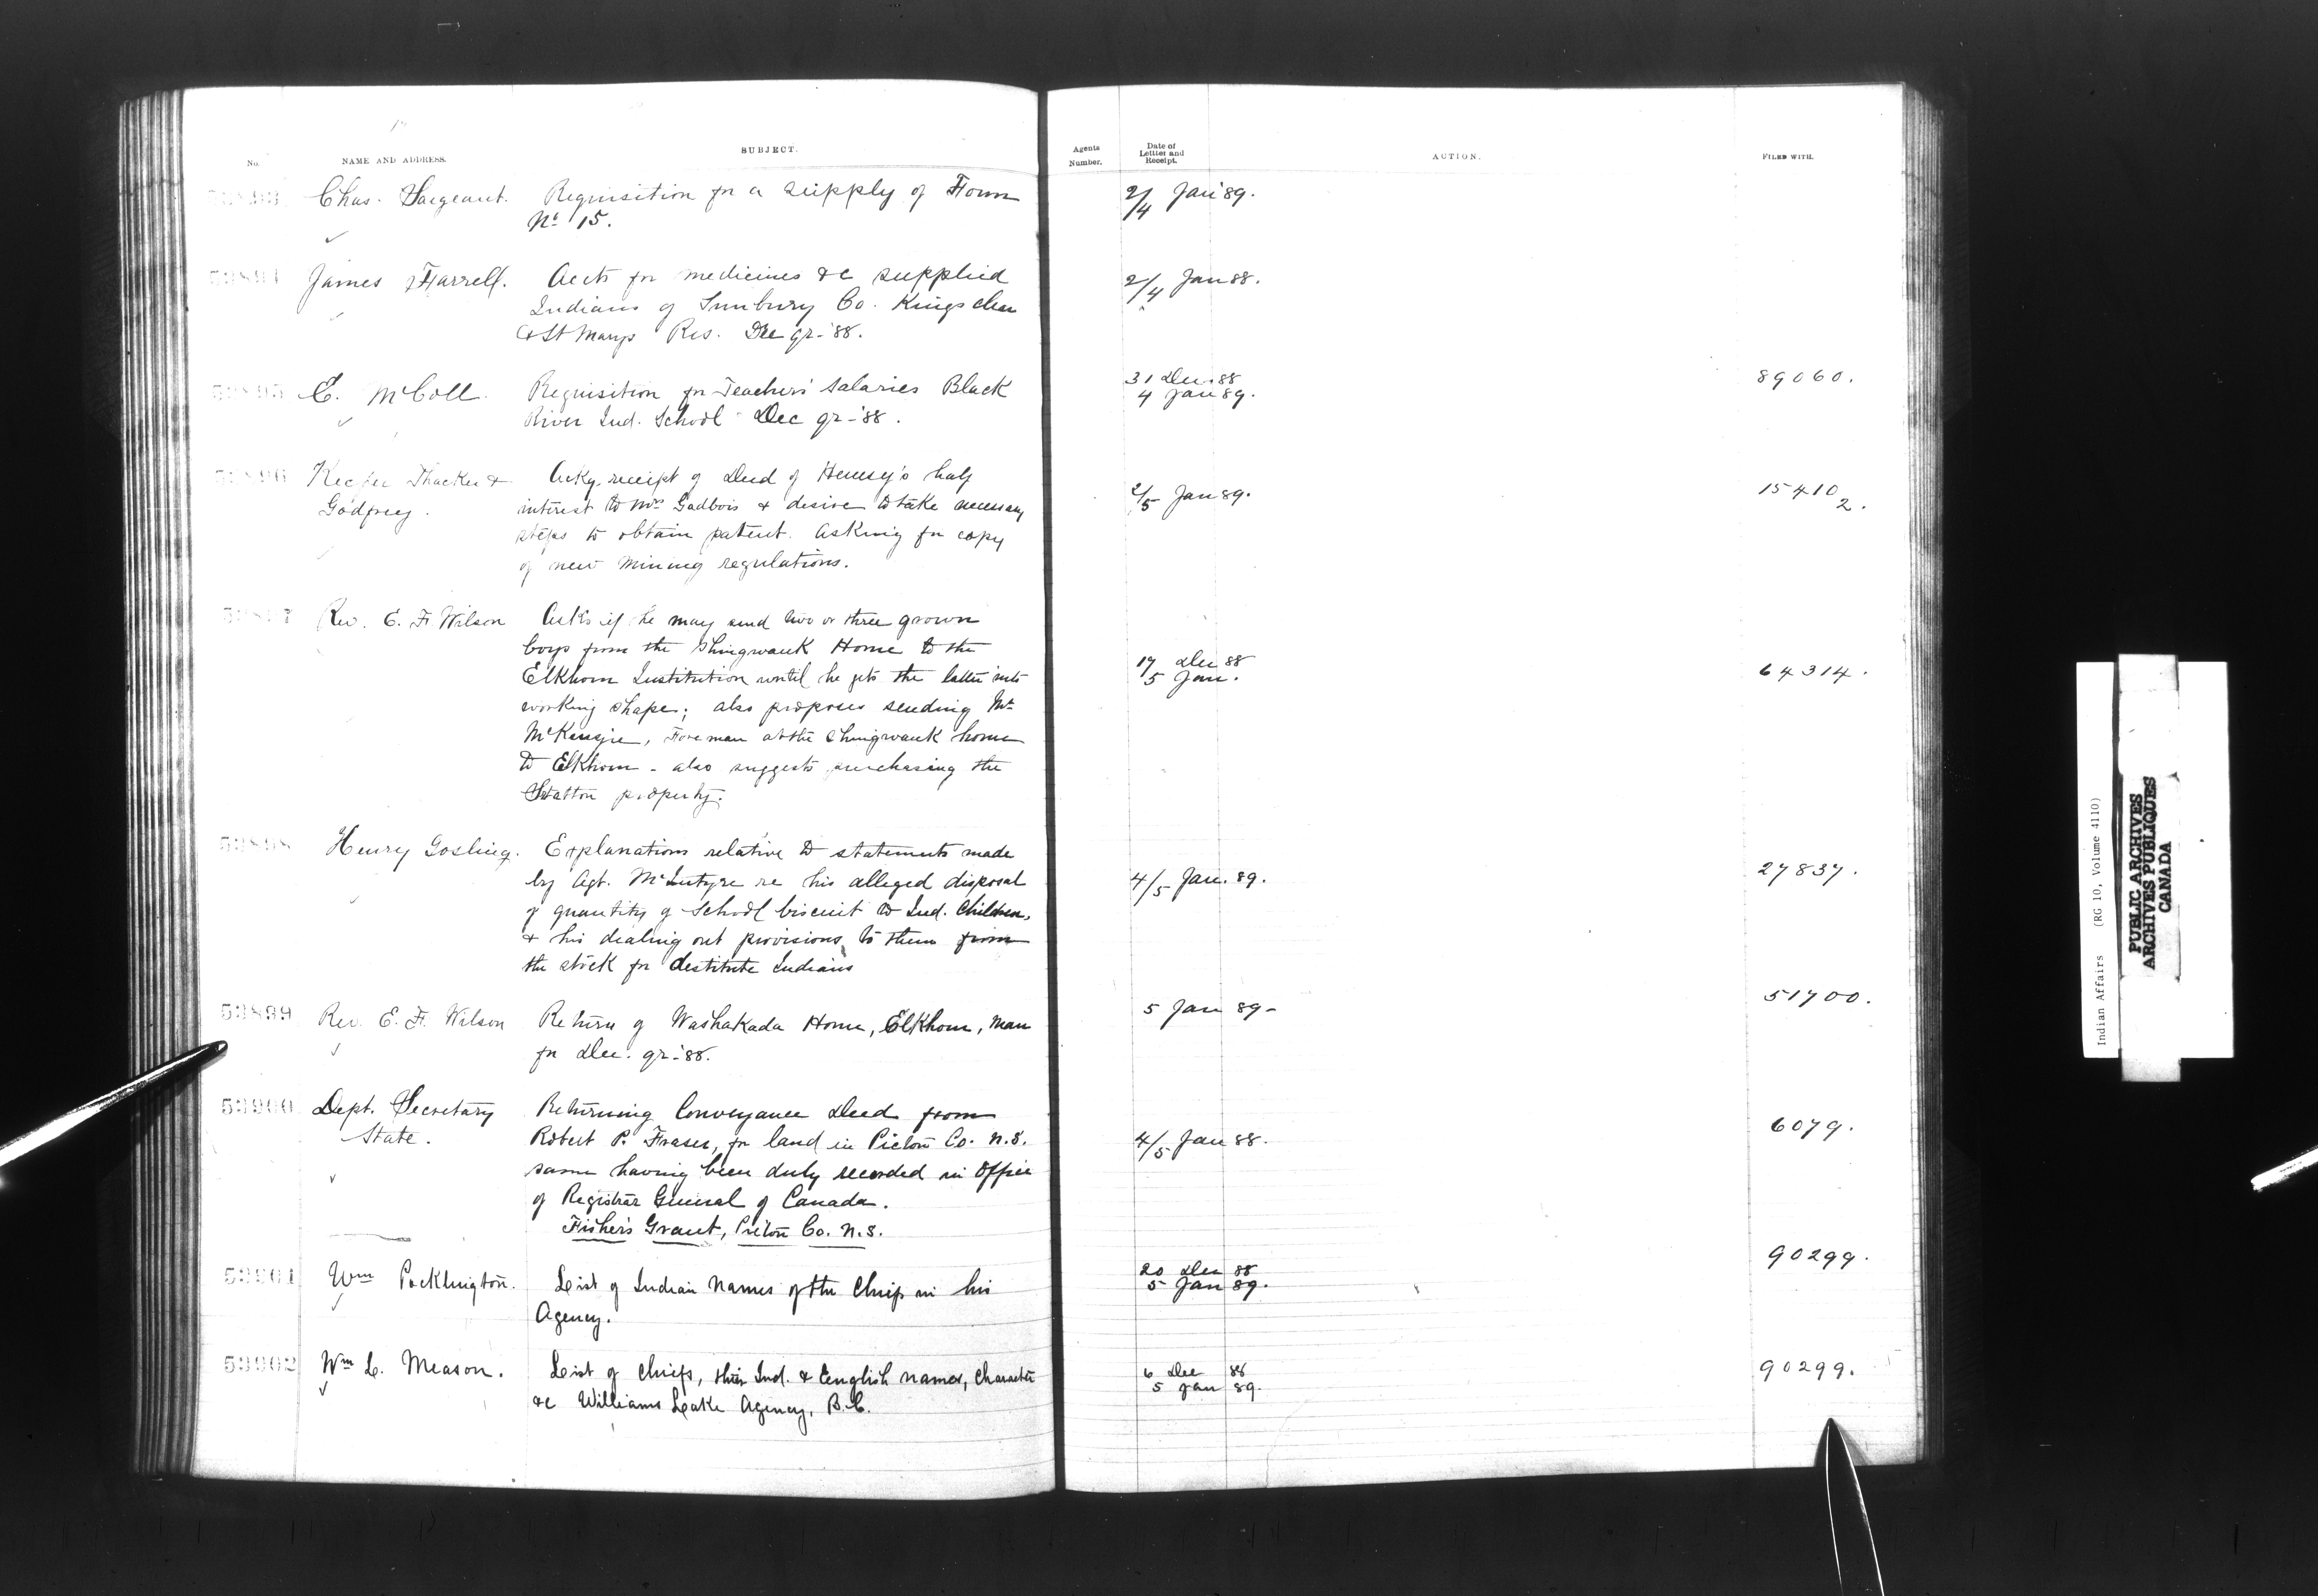 No. NAME AND ADDRESS. SUBJECT. Agents Number. Date of Letter and Receipt. ACTION. FILED WITH.
53893 Chas. Sargeant. Requisition for a supply of Form 2/4 Jan '89.
No 15.
53894 James Farrell. Accts for medicines &c supplied 2/4 Jan 88.
Indians of Sunbury Co. Kingsclear
& St Marys Res. Dec qr-'88.
53895 E. McColl. Requisition for Teachers' salaries Black 31 Dec. 88 89060.
River Ind. School - Dec qr-'88. 4 Jan 89.
53896 Keefer Thacker & Ackg. receipt of Deed of Hennsey's half 2/5 Jan 89. 15410
Godfrey. interest to Mrs Gadbois & desire to take necessary 2.
steps to obtain patent. Asking for copy
of new mining regulations.
53897 Rev. E. F. Wilson Asks if he may send two or three grown
boys from the Shingwauk Home to the 17 Dec 88
Elkhorn Institution until he gets the latter into 5 Jan. 64314.
working shape; also proposes sending Mr
McKenzie, Foreman at the Shingwauk home
to Elkhorn - also suggests purchasing the
property.
53898 Henry Gosling. Explanations relative to statements made
by Agt. McIntyre re his alleged disposal 4/5 Jan. 89. 27837.
of quantity of School biscuit to Ind. Children,
& his dealing out provisions to them from
the stock for destitute Indians
53899 Rev. E. F. Wilson Return of Washakada Home, Elkhorn, Man 5 Jan 89- 51700.
for Dec. qr-'88.
53900 Dept. Secretary Returning Conveyance Deed from
State. Robert P. Fraser, for land in Pictou Co. N.S. 4/5 Jan 88. 6079.
same having been duly recorded in Office
of Registrar General of Canada.
Fisher's Grant, Pictou Co. N.S.
53901 Wm Pocklington. List of Indian Names of the Chiefs in his 20 Dec 88 90299.
Agency. 5 Jan 89.
53902 Wm L. Meason. List of Chiefs, their Ind. & English names, character 6 Dec 88 90299.
&c Williams Lake Agency, B.C. 5 Jan 89.
Indian Affairs (RG 10, Volume 4110)
PUBLIC ARCHIVES
ARCHIVES PUBLIQUES
CANADA